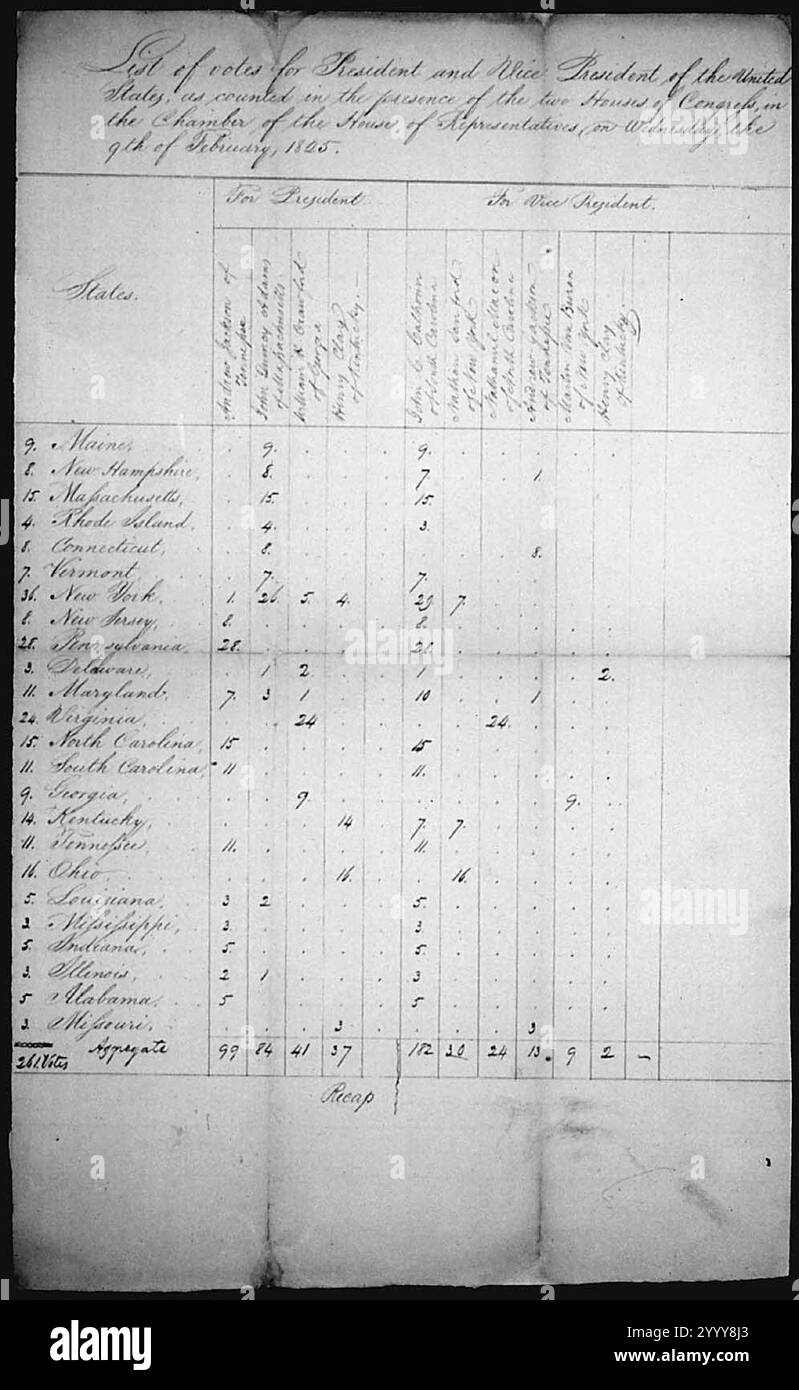 List of votes for President and Vice President of the United
States, as counted in the presence of the two Houses of Congress, in
the Chamber of the House of Representatives, on Wednesday, the
9th of February, 1825.
For President For Vice President.
States.
Andrew Jackson of
Tennessee
John Quincy Adams
of Massachusetts.
William H Crawford
of Georgia
Henry Clay
of Kentucky.
John C Calhoun
of South Carolina
Nathan Sanford
of New York
Nathaniel Macon
of North Carolina
Andrew Jackson
of Tennessee
Martin Van Buren
of New York
Henry Clay
of Kentucky.
9. Maine, . 9. . . . 9. . . . . .
8. New Hampshire, . 8. . . . 7. . . 1. . .
15. Massachusetts, . 15. . . . 15. . . . . .
4. Rhode Island, . 4. . . . 3. . . . . .
8. Connecticut, . 8. . . . . . . 8. . .
7. Vermont, . 7. . . . 7. . . . . .
36. New York, 1. 26. 5. 4. . 29. 7. . . . .
8. New Jersey, 8. . . . . 8. . . . . .
28. Pennsylvania 28. . . . . 28. . . . . .
3. Delaware, . 1 2. . . 1 . . . . 2.
11. Maryland. 7. 3 1 . . 10 . . 1 . .
24. Virginia, . . 24 . . . . 24. . . .
15. North Carolina, 15 . . . . 15 . . . . .
11. South Carolina, 11 . . . . 11. . . . . .
9. Georgia, . . 9. . . . . . . 9. .
14. Kentucky, . . . 14 . 7. 7. . . . .
11. Tennessee, 11. . . . . 11. . . . . .
16. Ohio . . . 16. . . 16. . . . .
5. Louisiana, 3 2 . . . 5. . . . . .
3. Mississippi, 3. . . . . 3. . . . . .
5. Indiana, 5. . . . . 5. . . . . .
3. Illinois, 2 1 . . . 3 . . . . .
5 Alabama. 5 . . . . 5 . . . . .
3. Missouri. . . . 3 . . . . 3 . .
261. Votes Aggregate 99 84 41 37 182 30 24 13. 9 2 –
Recap
alamy
alamy
alamy
a
a
a
a
alamy
Image ID: 2YYY8J3
www.alamy.com